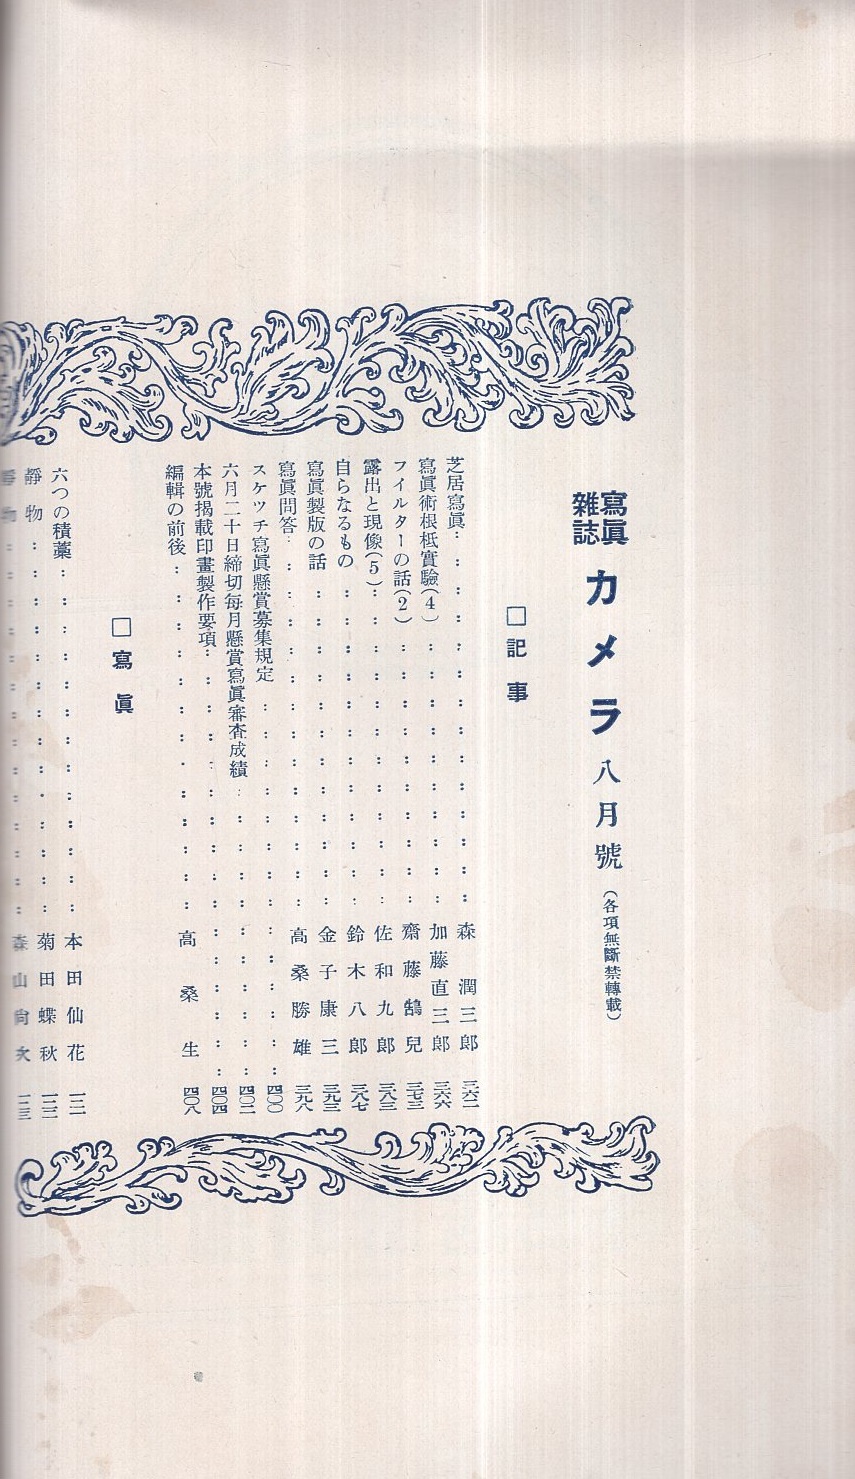 寫眞雜誌 カメラ 八月號 (各項無斷禁轉載)
□記事
芝居寫眞 森潤三郎 三六一
寫眞術根柢實驗(4) 加藤直三郎 三六六
フイルターの話(2) 齋藤鵠兒 三七三
露出と現像(5) 佐和九郎 三八三
自らなるもの 鈴木八郎 三八七
寫眞製版の話 金子康三 三九三
寫眞問答 高桑勝雄 三九八
スケツチ寫眞懸賞募集規定 四〇〇
六月二十日締切每月懸賞寫眞審査成績 四〇二
本號揭載印畫製作要項 四〇四
編輯の前後 高桑生 四〇八
□寫眞
六つの積藁 本田仙花
靜物 菊田蝶秋
靜物 森山